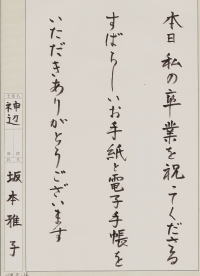 本日私の卒業を祝てくださる
すばらしいお手紙と電子手帳を
いただきありがとうございます
神辺
坂本雅子